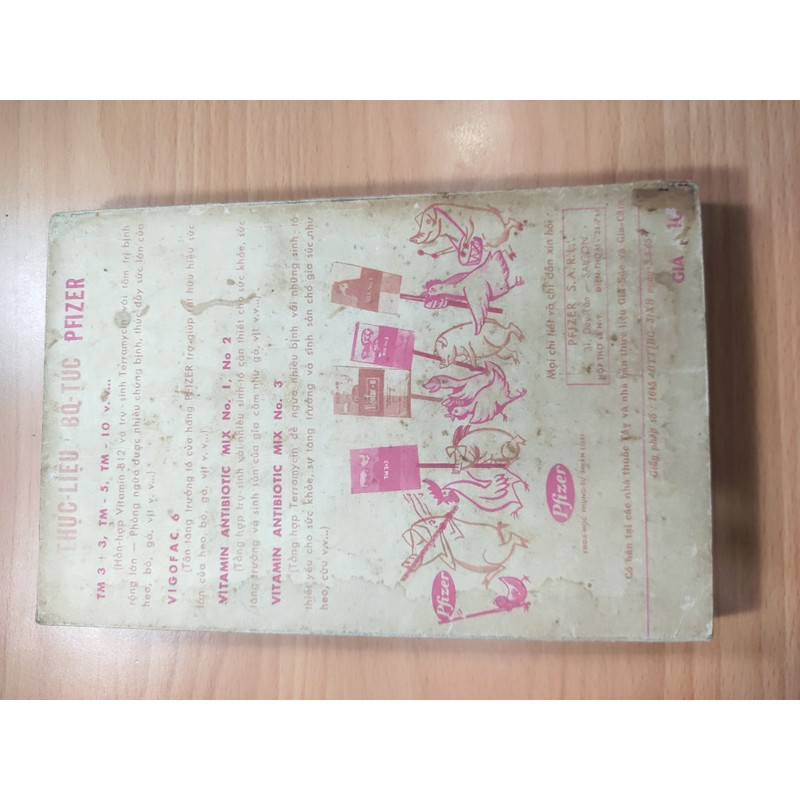 THỰC-LIỆU BỔ-TÚC PFIZER
TM 3 + 3, TM - 5, TM - 10 v.v...
(Hỗn-hợp Vitamin B12 và trụ sinh Terramycin với tầm trị bịnh
rộng lớn — Phòng ngừa được nhiều chứng bịnh, thúc đẩy sức lớn của
heo, bò, gà, vịt v.v...)
VIGOFAC. 6
(Tân-tăng trưởng tố của hãng PFIZER trợ giúp rất hữu hiệu sức
lớn của heo, bò, gà, vịt v. v...)
VITAMIN ANTIBIOTIC MIX No. 1, No 2
(Tổng hợp trụ-sinh với nhiều sinh-tố cần thiết cho sức khỏe, sức
tăng trưởng và sinh sản của gia cầm như gà, vịt v.v...)
VITAMIN ANTIBIOTIC MIX No. 3
(Tổng hợp Terramycin để ngừa nhiều bịnh với những sinh-tố
thiết yếu cho sức khỏe, sự tăng trưởng và sinh sản cho gia súc như
heo, cừu v.v...)
Pfizer
Pfizer
KHOA-HỌC PHỤNG-SỰ NHÂN LOẠI
Mọi chi tiết và chỉ dẫn xin hỏi :
PFIZER S.A.R.L.
31, Duy Tân — SAIGON
Có bán tại các nhà thuốc Tây và nhà bán thực liệu Gia-Súc và Gia-Cầm
Giấy phép số : 1645
GIÁ